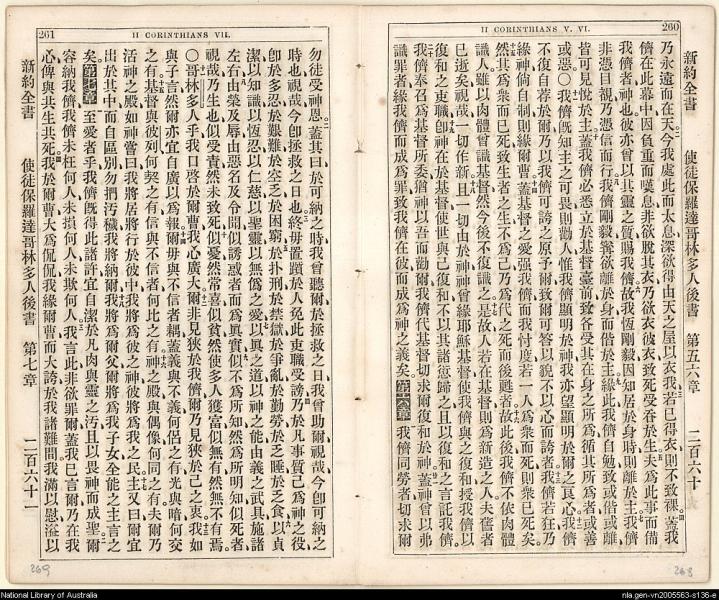 260
II CORINTHIANS V. VI.
新約全書 使徒保羅達哥林多人後書 第五六章 二百六十
乃永遠而在天今我處此而太息深欲得由天之屋以衣我若已得衣則不致裸蓋我
儕在此幕中因負重而嘆息非欲脫其衣乃欲衣彼衣致死受吞於生夫為此事而備
我儕者神也彼亦曾以其靈之質賜我儕故我恆剛毅因知居於身時則離於主我儕
非憑目覩乃憑信而行我儕剛毅甯欲離於身而偕於主緣此我儕自勉致或偕或離
皆可見悅於主蓋我儕必悉立於基督臺前致各受其在身之所為循其所為者或善
或惡○我儕旣知主之可畏則勸人惟我儕顯明於神我亦望顯明於爾之良心我儕
不復自荐於爾乃以我儕可誇之原予爾致爾可答以貌不以心而誇者我儕若狂乃
緣神倘自制則緣爾曹蓋基督之愛強我儕而我忖度若一人為衆而死則衆已死矣
然其為衆而已死致生者之生不為己乃為代之死而後甦者故此後我儕不依肉體
識人雖以肉體曾識基督然今後不復識之是故人若在基督則為新造之人夫舊者
已逝矣視哉一切作新且一切由於神神曾緣耶穌基督使我儕與之復和授我儕以
復和之吏職卽神在於基督使世與己復和不以其諸愆歸之且以復和之言託我儕
我儕奉召為基督所委猶神以吾而勸爾我儕代基督切求爾復和於神蓋神曾以弗
識罪者緣我儕而成為罪致我儕在彼而成為神之義矣第六章我儕同勞者切求爾
268
261
II CORINTHIANS VII.
勿徒受神恩蓋其曰於可納之時我曾聽爾於拯救之日我曾助爾視哉今卽可納之
時也視哉今卽拯救之日也終毋置躓於人免此吏職受謗乃於凡事質己為神之役
卽於多忍於艱難於空乏於困窮於扑刑於禁獄於爭亂於勤勞於乏睡於乏食以貞
潔以知識以恆忍以仁慈以聖靈以無偽之愛以真之道以神之能由義之武具施諸
左右由榮及辱由惡名及令聞似誘惑者而為真實似不為所知然為所明知似死者
視哉乃生也似受責然未致死似憂然常喜似貧然使多人獲富似無有然無不有焉
○哥林多人乎我口啓於爾曹我心廣大爾非見狹於我儕乃見狹於己之衷我如
與子言然爾亦宜自廣以為報爾毋與不信者耦蓋義與不義何侶之有光與暗何交
之有基督與彼列何契之有信與不信者何比之有神之殿與偶像何同之有夫爾乃
活神之殿如神嘗曰我將居將行於彼中我將為彼之神彼將為我之民主又曰爾宜
出於其中而自區別勿捫汚穢我將納爾我將為爾父爾將為我子女全能之主言之
矣第七章至愛者乎我儕旣得此諸許宜自潔於凡肉與靈之汚且以畏神而成聖爾
容納我儕我儕未枉何人未損何人未欺何人我言此非欲罪爾蓋我已言爾乃在我
心俾與共生共死我於爾曹大為侃侃我緣爾曹而大誇於我諸難間我滿以慰溢以
新約全書 使徒保羅達哥林多人後書 第七章 二百六十一
269
National Library of Australia
nla.gen-vn2005563-s136-e